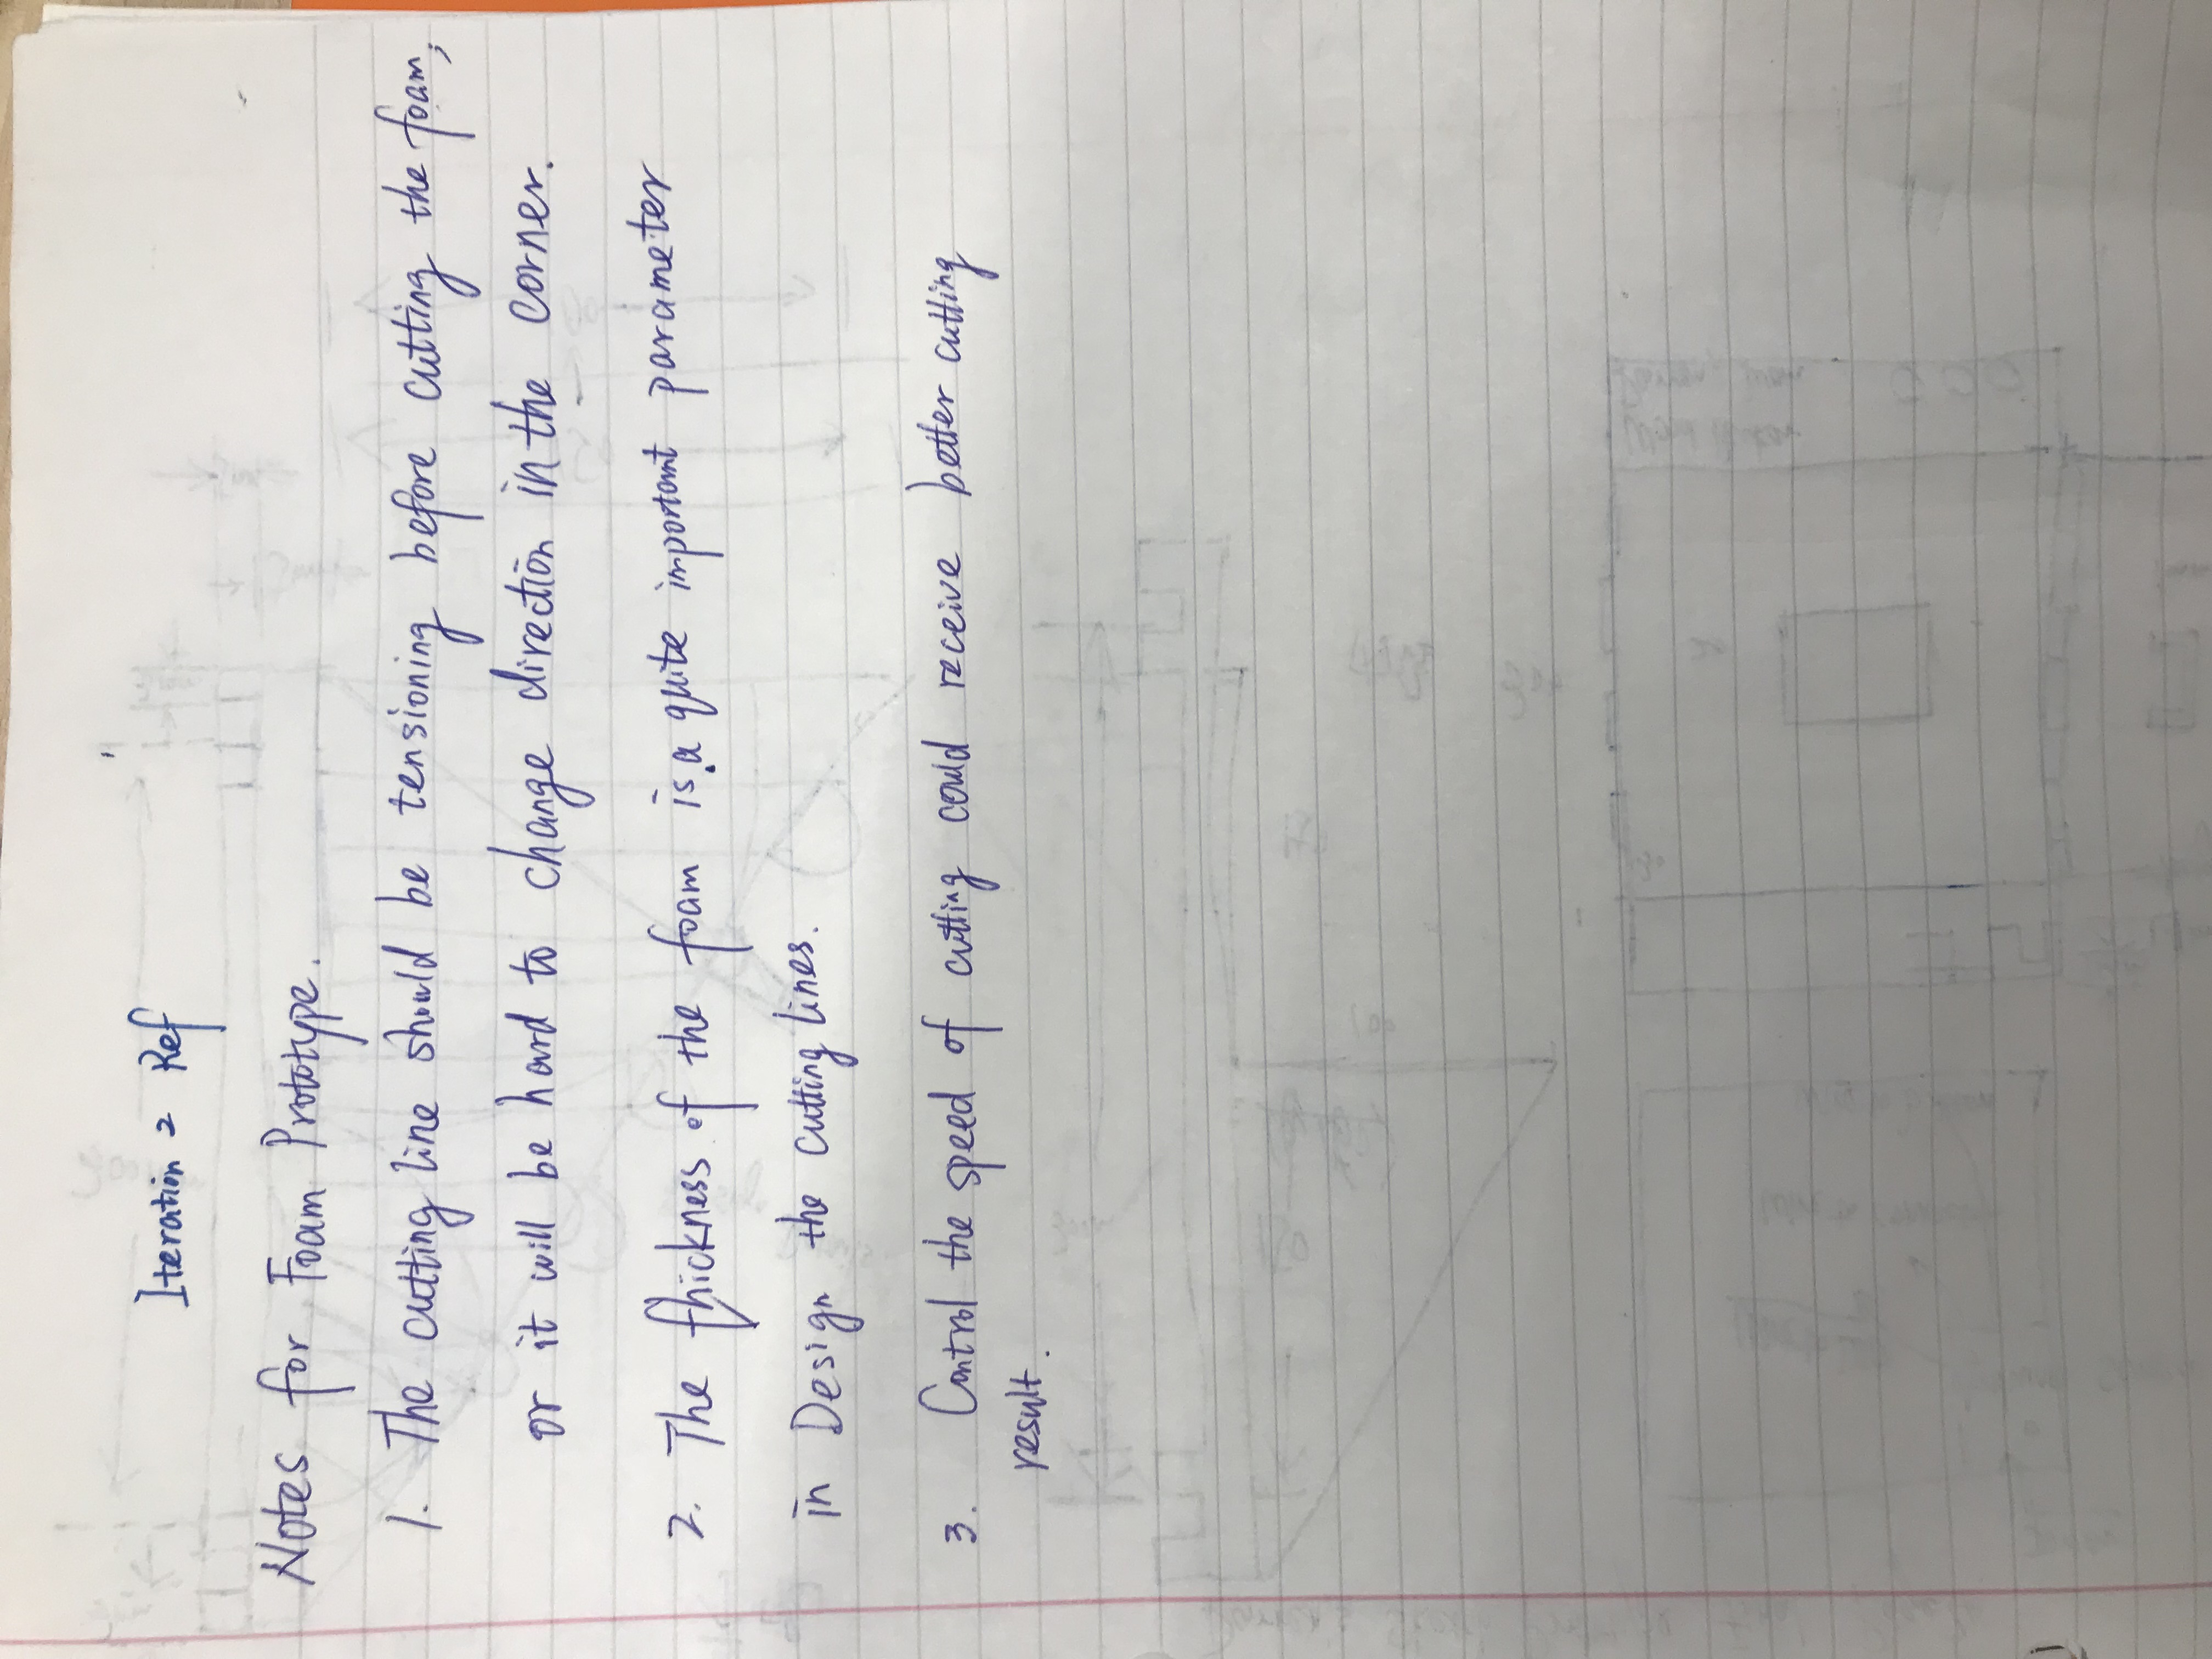 Iteration 2 Ref
Notes for Foam Prototype.
1. The cutting line should be tensioning before cutting the foam,
or it will be hard to change direction in the corner.
2. The thickness of the foam is a quite important parameter
in Design the cutting lines.
3. Control the speed of cutting could receive better cutting
result.